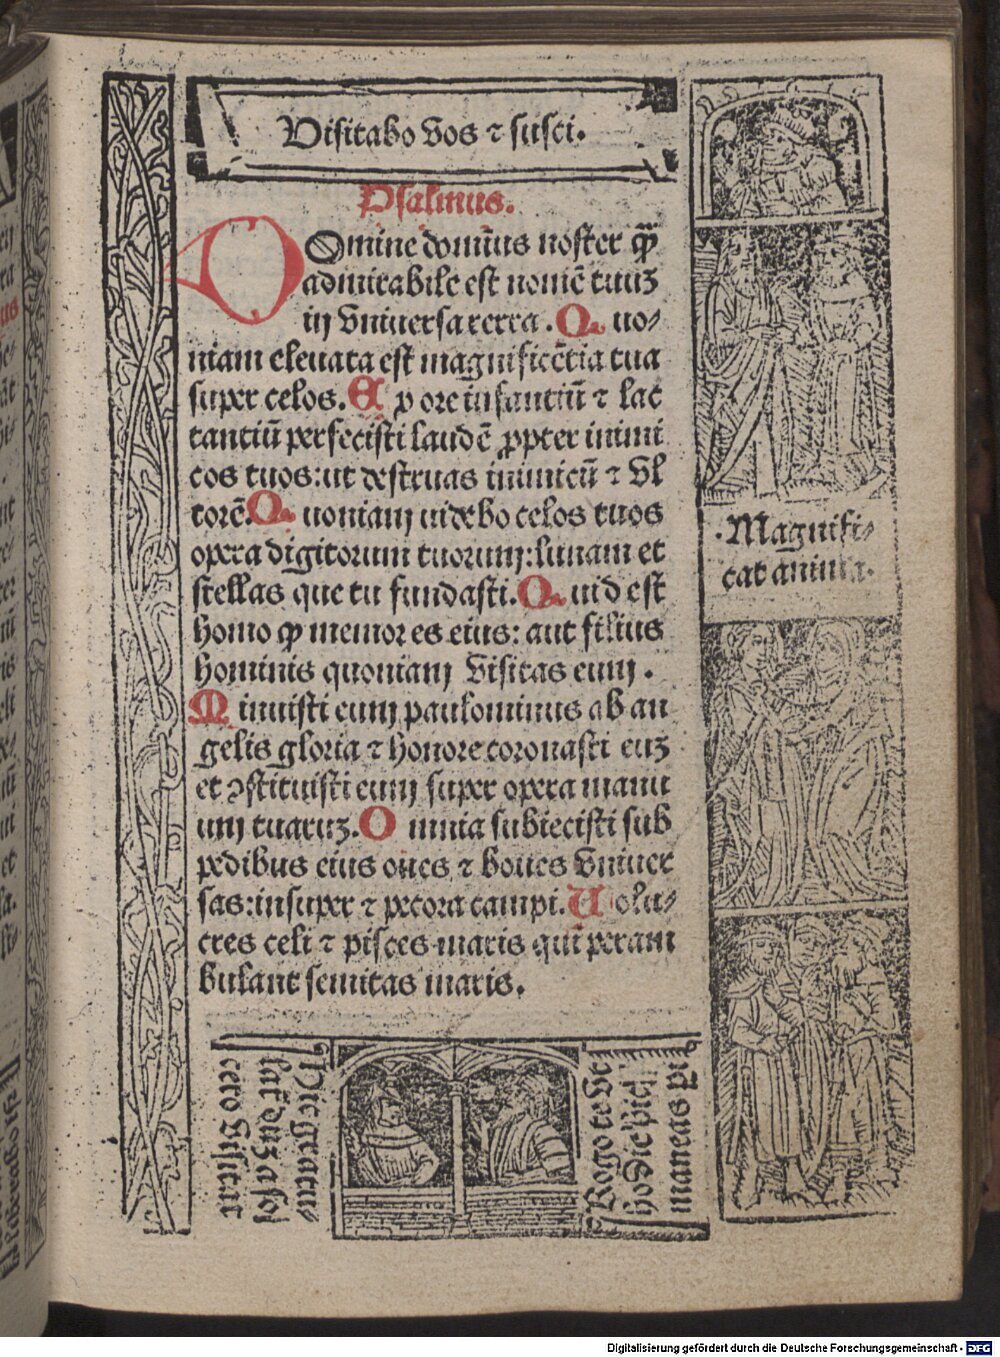 Visitabo vos ⁊ susci.
Psalmus.
Domine domīus noster qͫ
admirabile est nomē tuuꝫ
in vniuersa terra. Quo⸗
niam eleuata est magnificētia tua
super celos. Ex ore infantiū ⁊ lac
tantiū perfecisti laudē ꝓpter inimi
cos tuos: ut destruas inimicū ⁊ vl
torē. Quoniam uidebo celos tuos
opera digitorum tuorum: lunam et
stellas que tu fundasti. Quid est
homo ꝙ memor es eius: aut filius
hominis quoniam visitas eum.
Minuisti eum paulominus ab an
gelis gloria ⁊ honore coronasti euꝫ
et ꝯstituisti eum super opera manu
um tuaruꝫ. Omnia subiecisti sub
pedibus eius oues ⁊ boues vniuer
sas: insuper ⁊ pecora campi. Uolu⸗
cres celi ⁊ pisces maris qui peram
bulant semitas maris.
.Magnifi⸗
cat anima.
Hic gratu⸗
lat̄
cero visitat
Rogo te vt
hodie
maneas
Digitalisierung gefördert durch die Deutsche Forschungsgemeinschaft - DFG